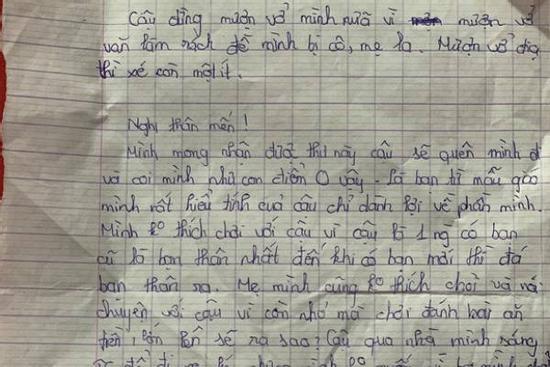 Cậu đừng mượn vở mình nữa vì mượn vở
văn làm rách để mình bị cô, mẹ la. Mượn vở địa
thì xé còn một ít.
Nghi thân mến!
Mình mong nhận được thư này cậu sẽ quên mình đi
và coi mình như con điên O vậy. Là bạn từ mẫu giáo
mình rất hiểu tính cuả cậu chỉ dành lợi về phần mình.
Mình ko thích chơi với cậu vì cậu là 1 ng có bạn
cũ là bạn thân nhất đến khi có bạn mới thì đá
bạn thân ra. Mẹ mình cũng ko thích chơi và nói
chuyện với cậu vì còn nhỏ mà chơi đánh bài ăn
tiền, lớn lên sẽ ra sao? Cậu qua nhà mình sáng